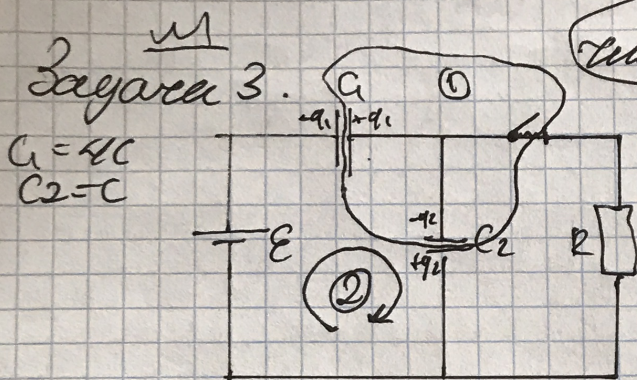 Задача 3.
C₁ = 4C
C2 = C
C₁
①
-q₁ +q₁
-q2
C₂
+q2
ε
②
R